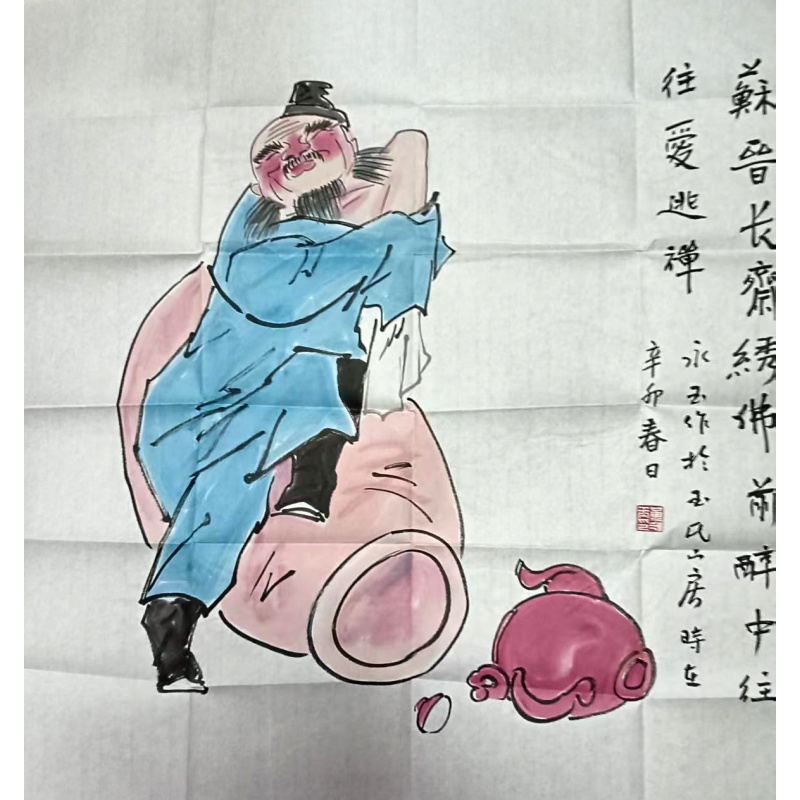 蘇晉长齋綉佛前醉中往
往愛逃禪
永玉作於玉氏山房時在
辛卯春日